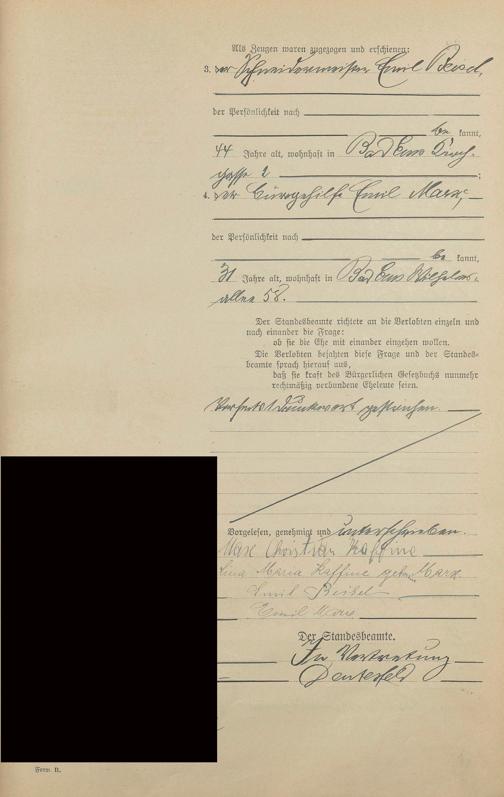 Als Zeugen waren zugezogen und erschienen:
3. der Schneidermeister Emil
der Persönlichkeit nach
be kannt,
44 Jahre alt, wohnhaft in Bad Ems
gasse 2 ;
4. der Bürogehilfe Emil Marx,
der Persönlichkeit nach
be kannt,
31 Jahre alt, wohnhaft in Bad Ems Wilhelms-
allee 58.
Der Standesbeamte richtete an die Verlobten einzeln und
nach einander die Frage:
ob sie die Ehe mit einander eingehen wollen.
Die Verlobten bejahten diese Frage und der Standes-
beamte sprach hierauf aus,
daß sie kraft des Bürgerlichen Gesetzbuchs nunmehr
rechtmäßig verbundene Eheleute seien.
Vorstehend 1 Druckwort gestrichen.
Vorgelesen, genehmigt und unterschrieben.
Max Christian Kaffine
Lina Maria Kaffine geb. Marx
Emil Beisel
Emil Marx
Der Standesbeamte.
In Vertretung
Form. B.